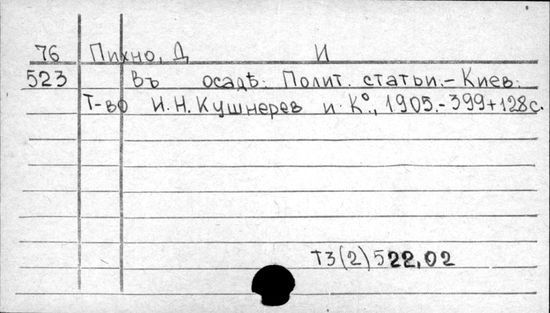 76 Пихно, Д И
523 Въ осадѣ: Полит. статьи.- Киев:
Т-во И.Н.Кушнерев и К°., 1905.-399+128с.
Т3(2)522,02